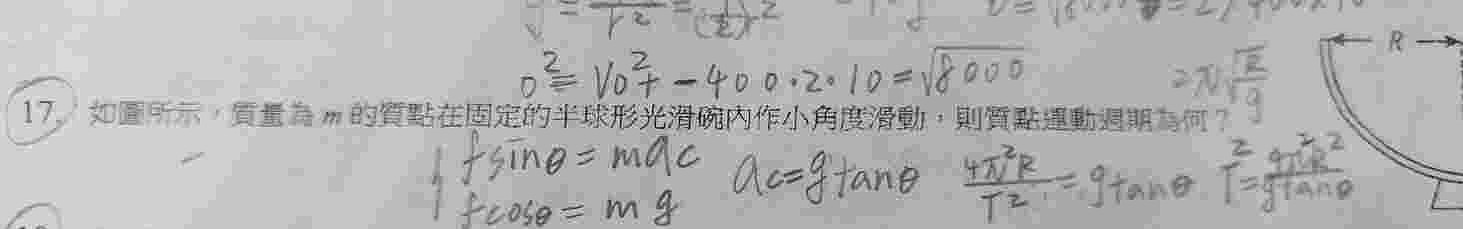 0² = V0² + -400·2·10 = √8000
2π√R/g
R
17. 如圖所示，質量為 m 的質點在固定的半球形光滑碗內作小角度滑動，則質點運動週期為何？
{ fsinθ = mac
fcosθ = mg
ac = gtanθ
4π²R/T² = gtanθ
T² = 4π²R²/gtanθ